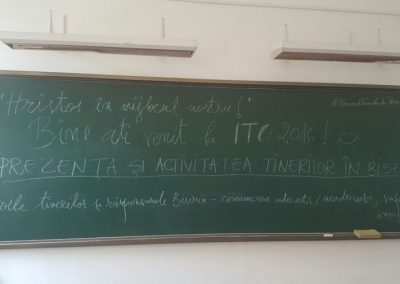 "Hristos în mijlocul nostru!"
Bine ați venit la ITO 2016! :)
PREZENȚA ȘI ACTIVITATEA TINERILOR ÎN BISE
tinerilor și răspunsurile Bisericii - comunicare